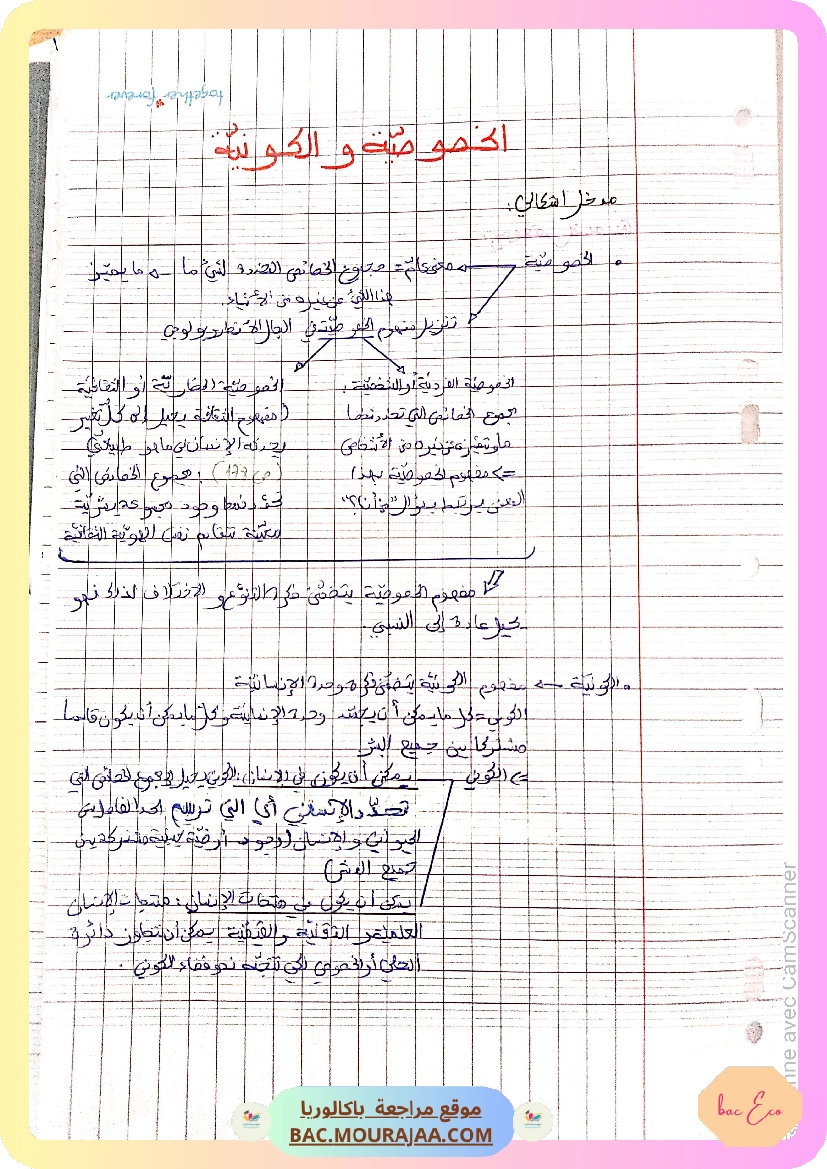 together forever
الخصوصيّة و الكونيّة
مدخل اشكالي:
• الخصوصيّة ← معنى عام = مجموع الخصائص المحددة لشيء ما → ما يميّز
هذا الشيء عن غيره من الأشياء.
تنزيل مفهوم الخصوصيّة في المجال الأنتروبولوجي
الخصوصيّة الفرديّة أو الشخصيّة:
مجموع الخصائص التي تحدد نمطا
ما وتميّزه عن غيره من الأشخاص
=> مفهوم الخصوصيّة بهذا
المعنى يرتبط بسؤال "من أنا؟"
الخصوصيّة الحضاريّة أو الثقافيّة
(مفهوم الثقافة يحيل إلى كلّ تغيير
يحدثه الإنسان في ما هو طبيعي
(ص 177): مجموع الخصائص التي
تحدّد نمط وجود مجموعة بشريّة
معيّنة تتقاسم نفس الهويّة الثقافيّة
مفهوم الخصوصيّة يتضمّن فكرة التنوّع و الاختلاف لذلك فهو
يحيل عادة إلى النسبي.
• الكونيّة ← مفهوم الكونيّة يتضمّن فكرة وحدة الإنسانيّة
الكوني = كل ما يمكن أن يجسّد وحدة الإنسانيّة و كل ما يمكن أن يكون قاسما
مشتركا بين جميع البشر
=> الكوني
يمكن أن يكون في الإنسان: الكوني يحيل لمجموع الخصائص التي
تحدّد الإنساني أي التي ترسم الحد الفاصل بين
الحيواني و الإنسان (وجود أرضيّة مشتركة بين
جميع البشر)
يمكن أن يكون في منتجات الإنسان: منتجات الإنسان
العلميّة و التقنيّة و القيميّة يمكن أن تتجاوز دائرة
المحلّي أو الخصوصي لكي تتّجه نحو فضاء الكوني.
nne avec CamScanner
bac Eco
موقع مراجعة باكالوريا
BAC.MOURAJAA.COM